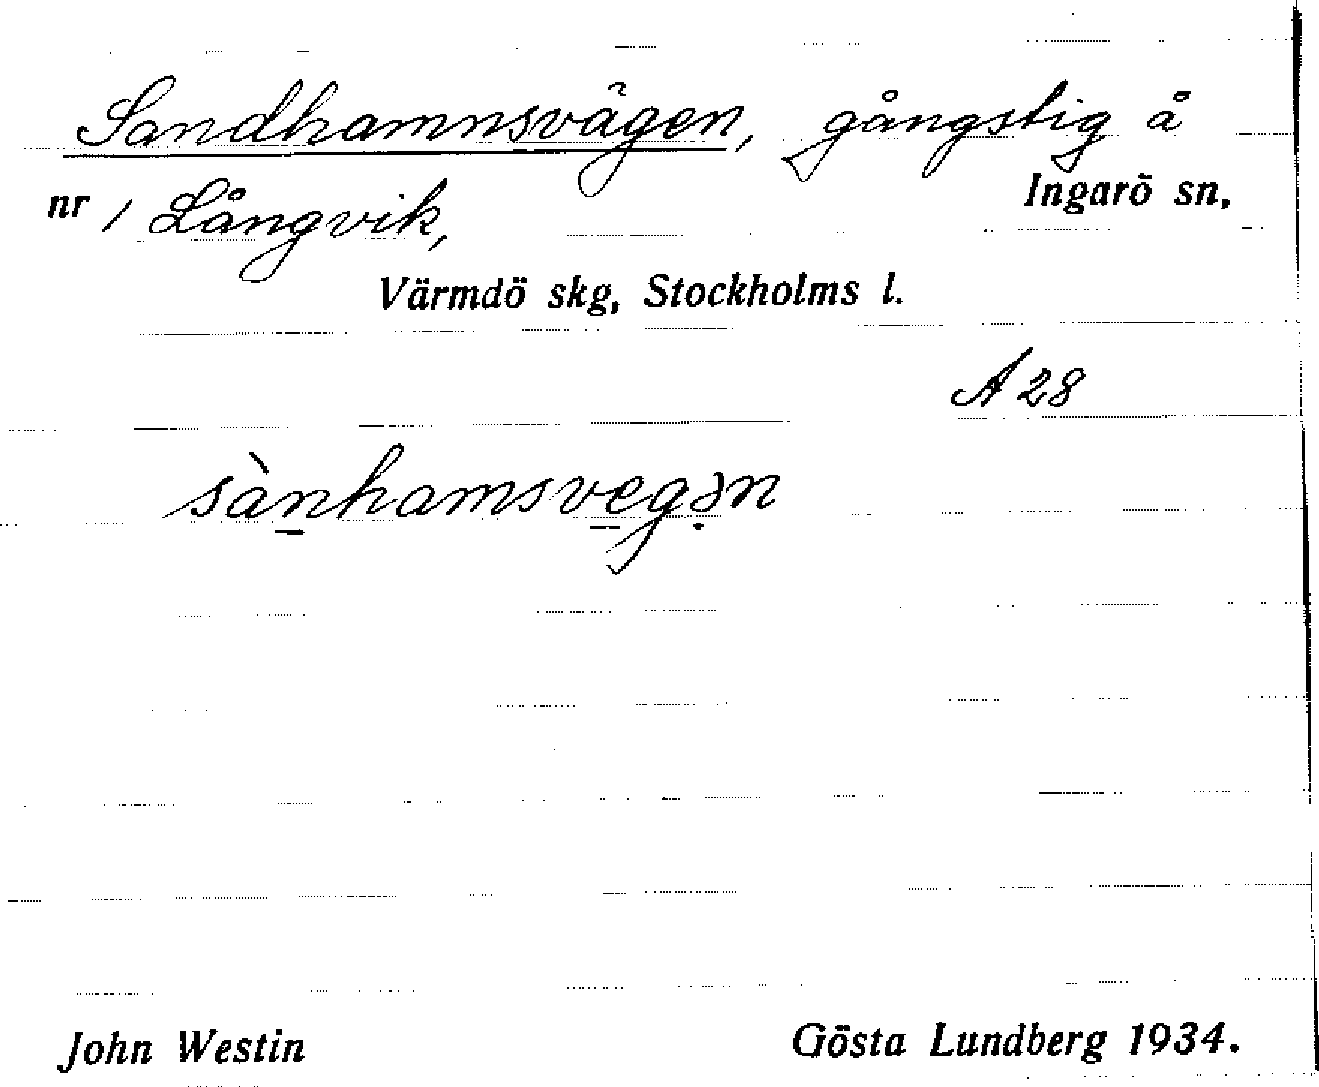 Sandhamnsvägen, gångstig å
nr 1 Långvik, Ingarö sn,
Värmdö skg, Stockholms l.
A 28
sàn̲hamsve̲gə̣n
John Westin Gösta Lundberg 1934.